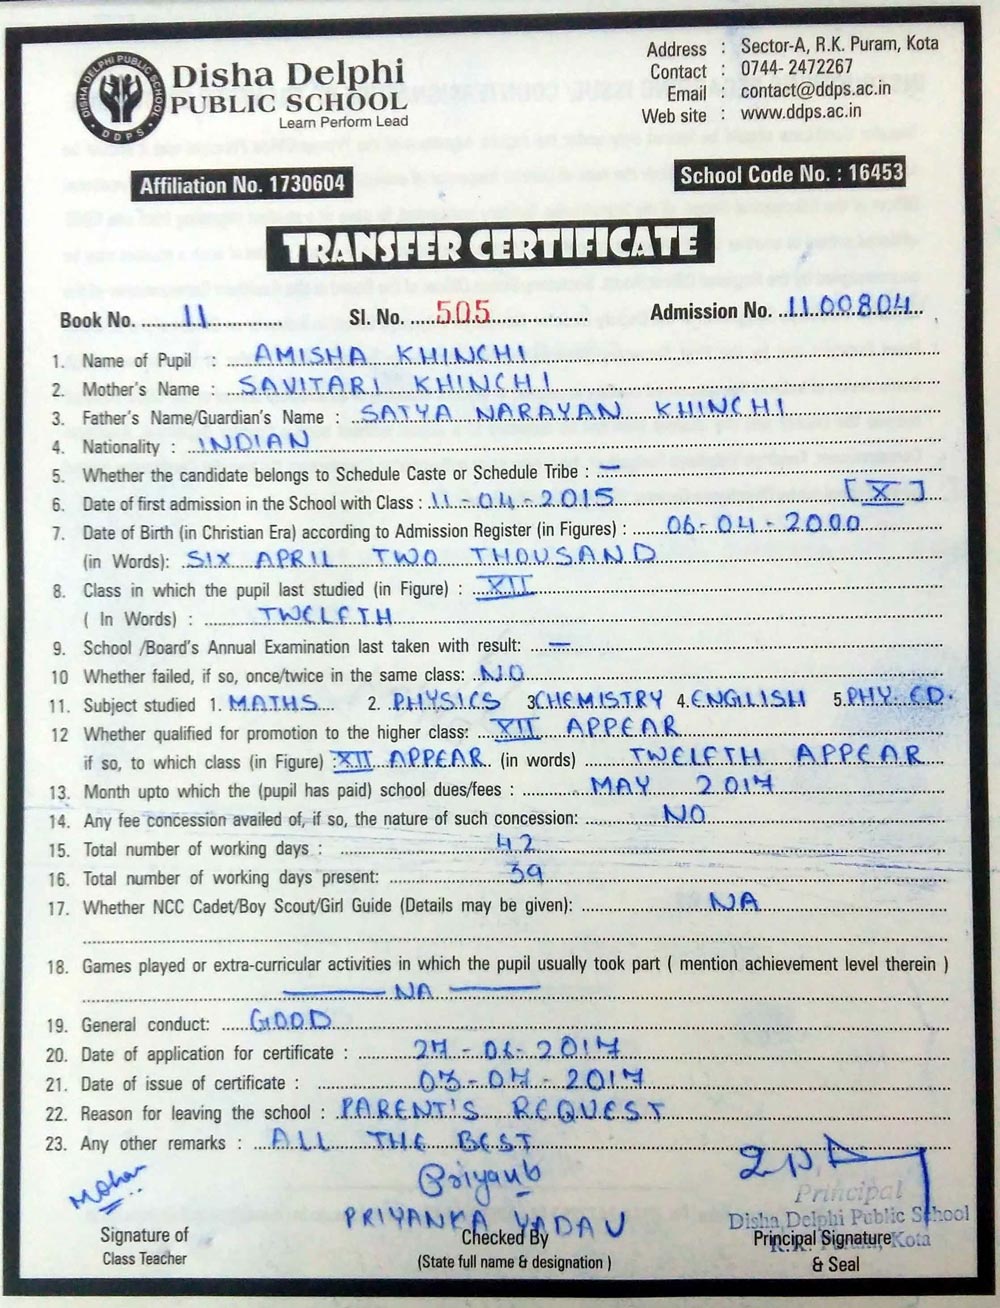 DISHA DELPHI PUBLIC SCHOOL
DDPS
Disha Delphi
PUBLIC SCHOOL
Learn Perform Lead
Address : Sector-A, R.K. Puram, Kota
Contact : 0744- 2472267
Email : contact@ddps.ac.in
Web site : www.ddps.ac.in
Affiliation No. 1730604
School Code No. : 16453
TRANSFER CERTIFICATE
Book No. 11 Sl. No. 505 Admission No. 1100804
1. Name of Pupil : AMISHA KHINCHI
2. Mother's Name : SAVITARI KHINCHI
3. Father's Name/Guardian's Name : SATYA NARAYAN KHINCHI
4. Nationality : INDIAN
5. Whether the candidate belongs to Schedule Caste or Schedule Tribe : —
6. Date of first admission in the School with Class : 11-04-2015 [X]
7. Date of Birth (in Christian Era) according to Admission Register (in Figures) : 06-04-2000
(in Words): SIX APRIL TWO THOUSAND
8. Class in which the pupil last studied (in Figure) : XII
( In Words) : TWELFTH
9. School /Board's Annual Examination last taken with result: —
10 Whether failed, if so, once/twice in the same class: NO
11. Subject studied 1. MATHS 2. PHYSICS 3 CHEMISTRY 4. ENGLISH 5. PHY. ED.
12 Whether qualified for promotion to the higher class: XII APPEAR
if so, to which class (in Figure) : XII APPEAR (in words) TWELFTH APPEAR
13. Month upto which the (pupil has paid) school dues/fees : MAY 2017
14. Any fee concession availed of, if so, the nature of such concession: NO
15. Total number of working days : 42
16. Total number of working days present: 39
17. Whether NCC Cadet/Boy Scout/Girl Guide (Details may be given): NA
18. Games played or extra-curricular activities in which the pupil usually took part ( mention achievement level therein )
— NA —
19. General conduct: GOOD
20. Date of application for certificate : 27-06-2017
21. Date of issue of certificate : 03-07-2017
22. Reason for leaving the school : PARENT'S REQUEST
23. Any other remarks : ALL THE BEST
Priyanka
PRIYANKA YADAV
Principal
Disha Delphi Public School
R.K. Puram, Kota
Signature of
Class Teacher
Checked By
(State full name & designation )
Principal Signature
& Seal